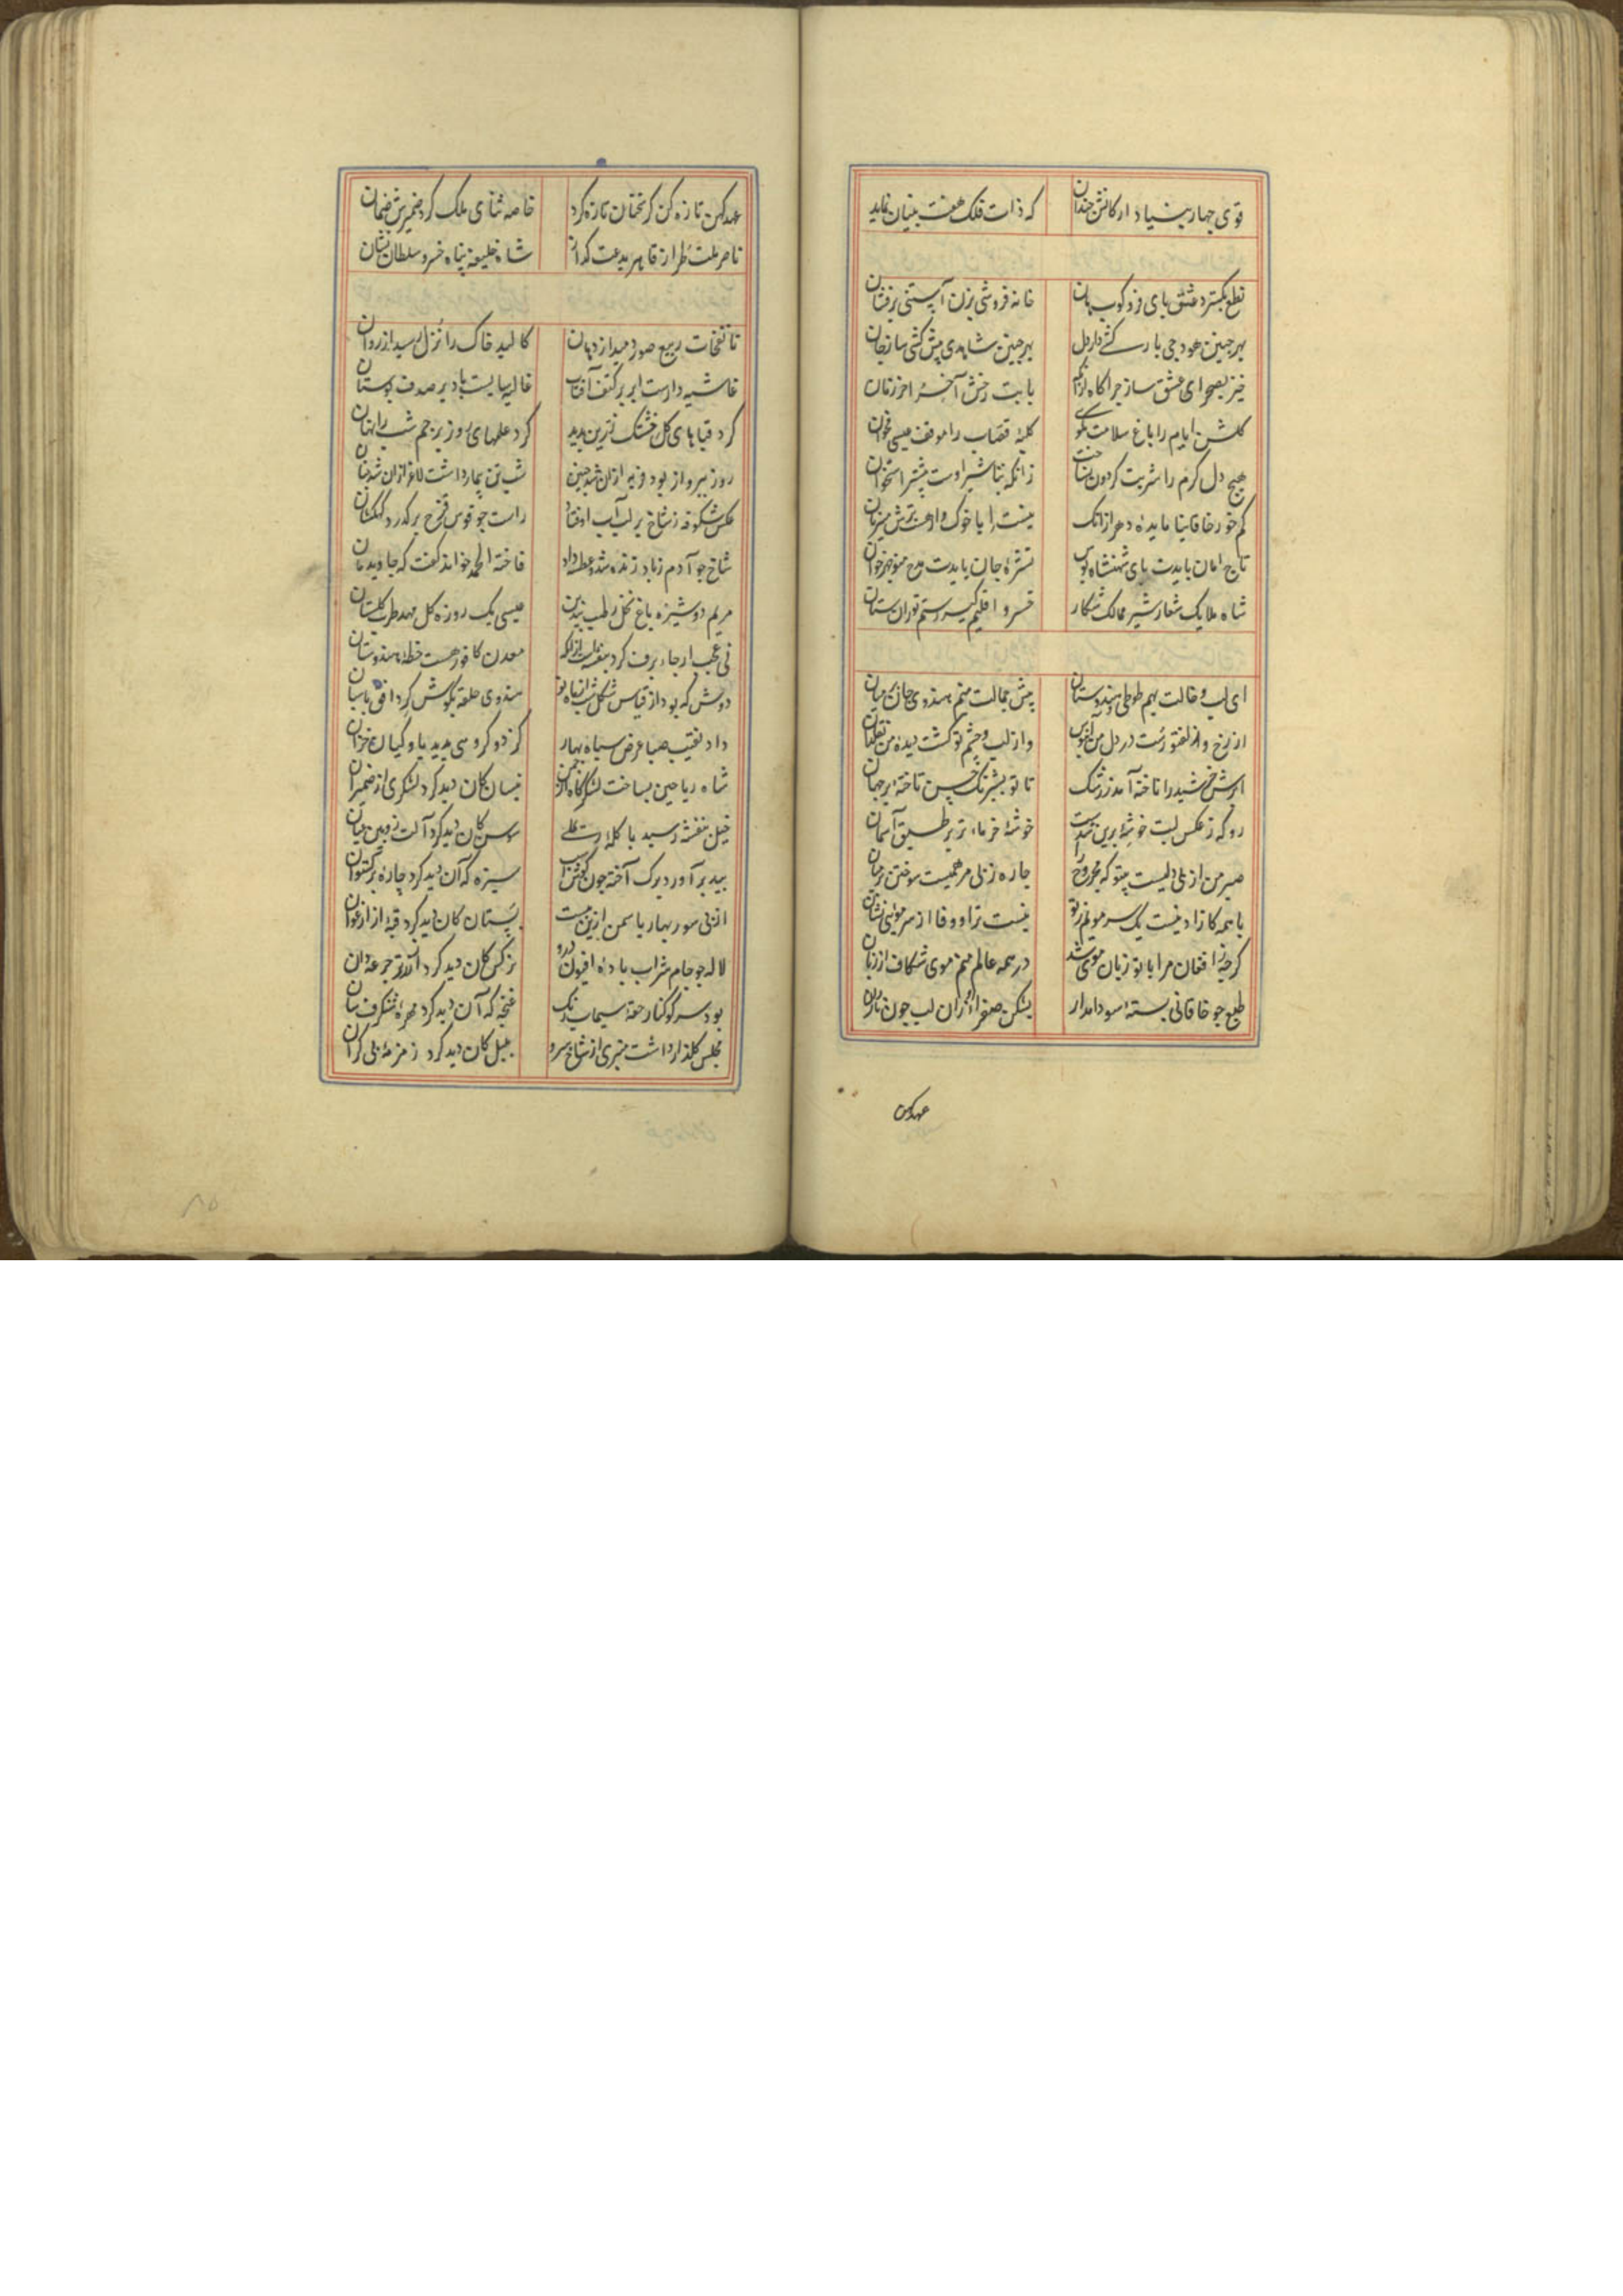 قوی چهار بنیاد ارکانش چندان که ذات فلک هفت بنیان نماید
نطع بگسترد عشق پای فرو کوب هان خانه فروشی بزن آستنی برفشان
بهر چنین هودجی بارکش دار دل بهر چنین شاهدی پیش کشی ساز جان
خیز بصحرای عشق ساز چراکاه بابت رخش آخر آخر زمان
کلشن ایام را باغ سلامت مکوی کلبهٔ قصاب را موقف عیسی مخوان
هیچ دل کرم را شربت کردون نساخت زانکه تباشیر اوست بیشتر استخوان
کم خور خاقانیا مایدهٔ دهر ازانک نیست ابا خوک وا هست ترش میزبان
تاج امان بایدت پای شهنشاه بوس نشرهٔ جان بایدت مدح منوچهر خوان
شاه ملایک شعار شیر ممالک شکار خسرو اقلیم کیر رستم توران ستان
ای لب و خالت بهم طوطی و هندوستان پیش جمالت منم هندوی جان بر میان
از رخ و زلفتو رست در دل من آبنوس واز لب و چشم تو کشت دیدهٔ من
ابرش خورشید را تاخته آمد ز رشک تا تو بشبرنک حسن تاختهٔ بر جهان
رو که ز عکس لبت خوشهٔ پروین شدست خوشهٔ خرماء تر بر طبق آسمان
صبر من از بی دلیست بیتو که مجروح را چاره ز بی مرهمیست سوختن پرنیان
با همه کازاد نیست یک سر مویم ز تو نیست ترا از وفا از سر مویی نشان
کرچه ز افغان مرا با تو زبان موی شد در همه عالم منم موی شکاف از زبان
طبع چو خاقانی بستهٔ سودا مدار بشکن صفرا او زان لب چون ناردان
عهد کهن
عهد کهن تازه کن کر سخنان تازه کرد خاصه ثنای ملک کرد ضمیرش ضمان
ناصر ملت طراز قاهر بدعت کداز شاه خلیفه پناه خسرو سلطان نشان
تا نفخات ربیع صور دمید از دهان کالبد خاک را نزل رسید از روان
غاشیه دارست ابر بر کتف آفتاب غالیه سایست باد بر صدف بوستان
کرد قباهای کل خشتک زرین پدید کرد علمهای روز پرچم شب را نهان
روز ببرواز بود فربه ازان شد چنین شب تن بیمار داشت لاغر ازان شد چنان
عکس شکوفه ز شاخ بر لب آب اوفتاد راست چو قوس قزح بر کذر کهکشان
شاخ چو آدم ز باد زنده شد و عطسه داد فاخته الحمد خواند کفت که جاوید مان
مریم دوشیزه باغ نخل رطب بید بن عیسی یک روزه کل مهد طرب کلستان
نی عجب ار جاء برف کرد بنفشه است ازانکه معدن کافور هست خطهٔ هندوستان
دوش که بود از قیاس شکل شب از ماه نو هندوی حلقه بکوش کرد افق پاسبان
داد نقیب صبا عرض سپاه بهار کز دو کروهی بدید یاوکیان خزان
شاه ریاحین بساخت لشکرکاه از چمن نیسان کان دید کرد لشکری از ضمیران
خیل بنفشه رسید با کله دیلمی سوسن کان دید کرد آلت زوبین میان
بید برآورد برک آخته چون کوش اسب سبزه که آن دید کرد چاره برکستوان
از بی سور بهار یاسمن آزین ببست بستان کان دید کرد قبه از ارغوان
لاله چو جام شراب پارهٔ افیون درو نرکس کان دید کرد از زر تر جرعه دان
بود سر کوکنار حقهٔ سیماب رنک غنچه که آن دید کرد مهرهٔ شنکرف سان
مجلس کلذار داشت منبری از شاخ سرو بلبل کان دید کرد زمزمهٔ بی کران
۸۵